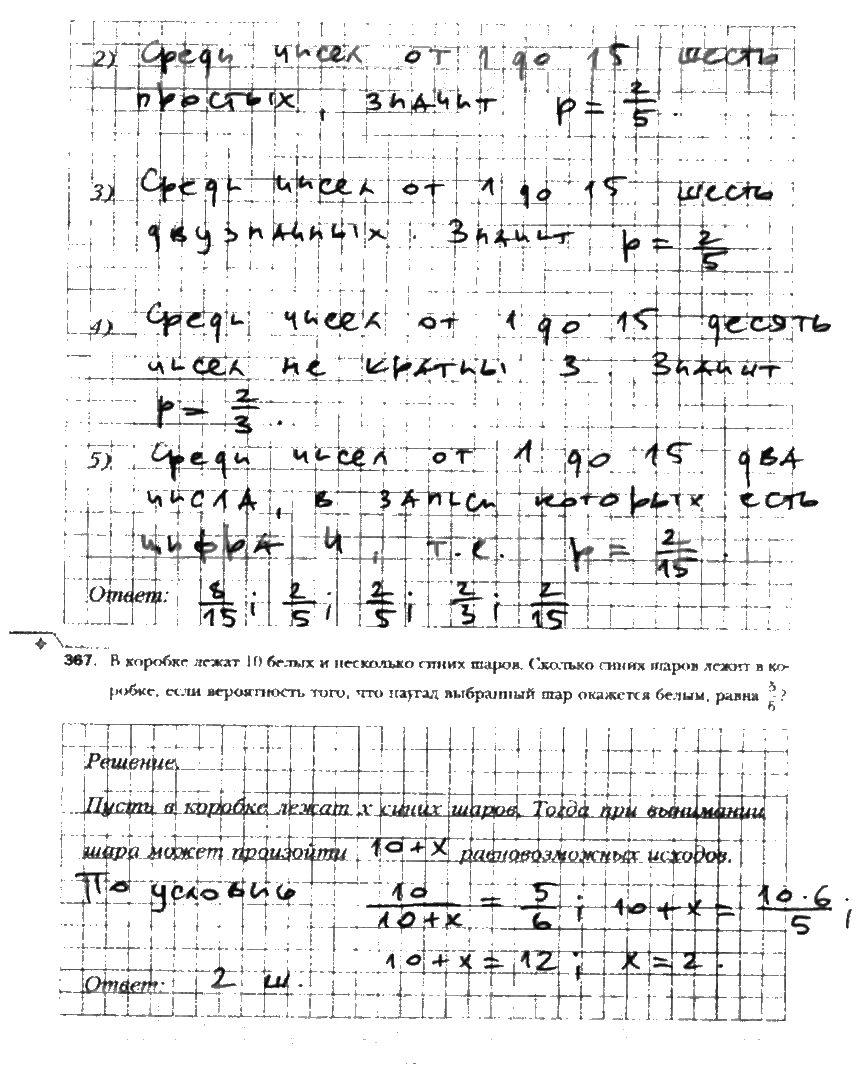 2) Среди чисел от 1 до 15 шесть
простых, значит p = 2/5.
3) Среди чисел от 1 до 15 шесть
двузначных. Значит p = 2/5
4) Среди чисел от 1 до 15 десять
чисел не кратны 3. Значит
p = 2/3.
5) Среди чисел от 1 до 15 два
числа, в записи которых есть
цифра 4, т.е. p = 2/15.
Ответ: 8/15; 2/5; 2/5; 2/3; 2/15
367. В коробке лежат 10 белых и несколько синих шаров. Сколько синих шаров лежит в ко-
робке, если вероятность того, что наугад выбранный шар окажется белым, равна 5/6?
Решение.
Пусть в коробке лежат x синих шаров. Тогда при вынимании
шара может произойти 10 + x равновозможных исходов.
По условию 10/(10 + x) = 5/6; 10 + x = (10·6)/5;
10 + x = 12; x = 2.
Ответ: 2 ш.